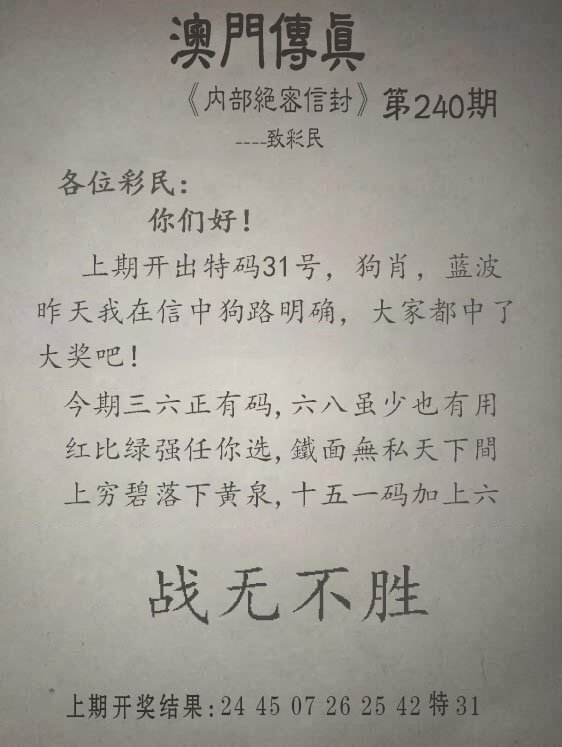 澳門傳眞
《内部絕密信封》第240期
----致彩民
各位彩民:
你们好!
上期开出特码31号，狗肖，蓝波
昨天我在信中狗路明确，大家都中了
大奖吧!
今期三六正有码,六八虽少也有用
红比绿强任你选,鐵面無私天下間
上穷碧落下黄泉,十五一码加上六
战无不胜
上期开奖结果:24 45 07 26 25 42特31